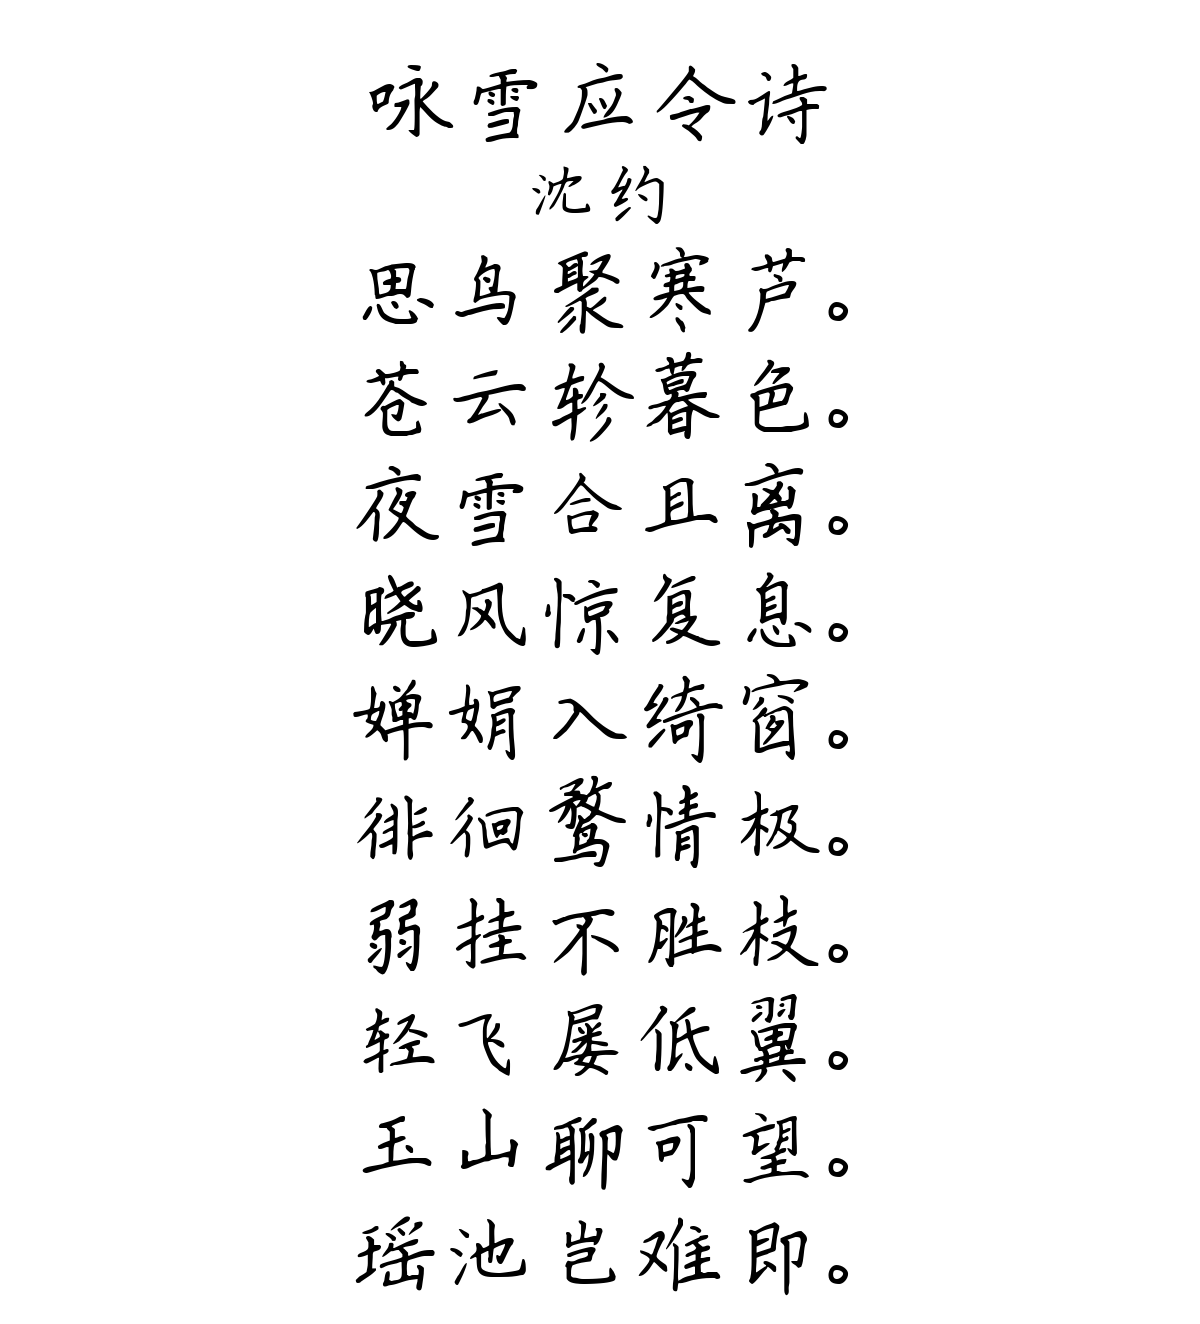 咏雪应令诗
沈约
思鸟聚寒芦。
苍云轸暮色。
夜雪合且离。
晓风惊复息。
婵娟入绮窗。
徘徊鹜情极。
弱挂不胜枝。
轻飞屡低翼。
玉山聊可望。
瑶池岂难即。